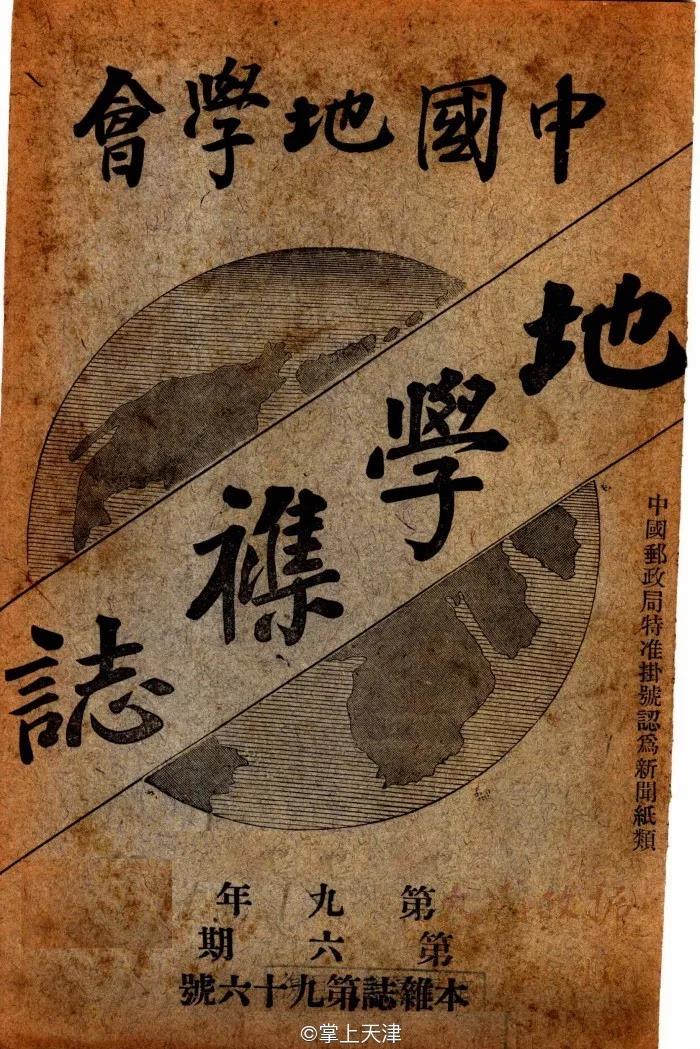 中國地學會
地學襍誌
中國郵政局特准掛號認爲新聞紙類
第九年
第六期
本雜誌第九十六號
©掌上天津